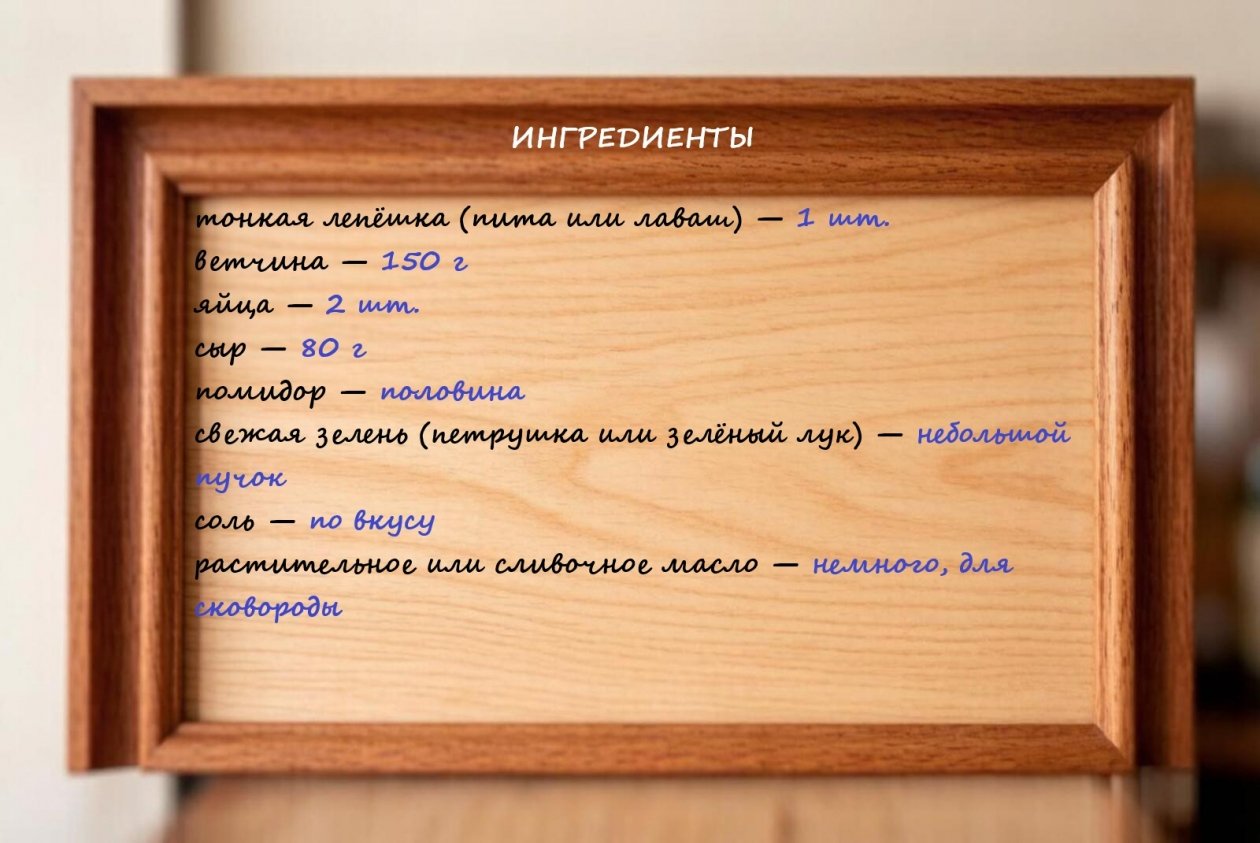 ИНГРЕДИЕНТЫ
тонкая лепёшка (пита или лаваш) — 1 шт.
ветчина — 150 г
яйца — 2 шт.
сыр — 80 г
помидор — половина
свежая зелень (петрушка или зелёный лук) — небольшой
пучок
соль — по вкусу
растительное или сливочное масло — немного, для
сковороды